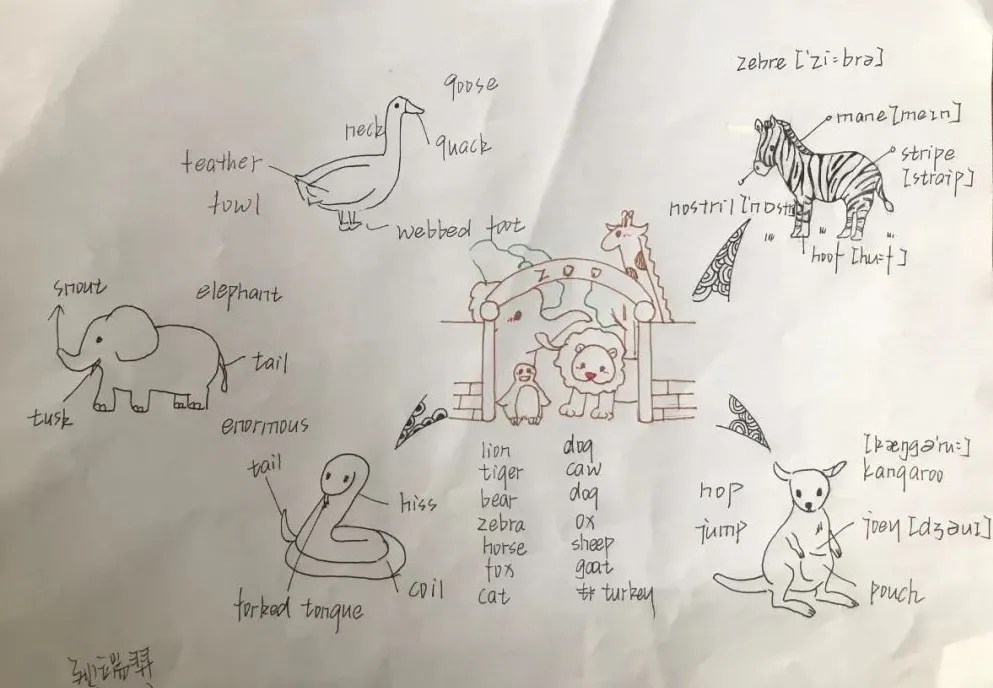 zebre ['zi:brə]
goose
neck
quack
feather
fowl
webbed foot
mane [meɪn]
stripe
[straip]
nostril ['nɒstr
hoof [hu:f]
ZOO
snout
elephant
tail
tusk
enormous
tail
hiss
coil
forked tongue
lion dog
tiger caw
bear dog
zebra ox
horse sheep
fox goat
cat turkey
[kæŋgə'ru:]
kangaroo
hop
jump
joey [dʒəuɪ]
pouch